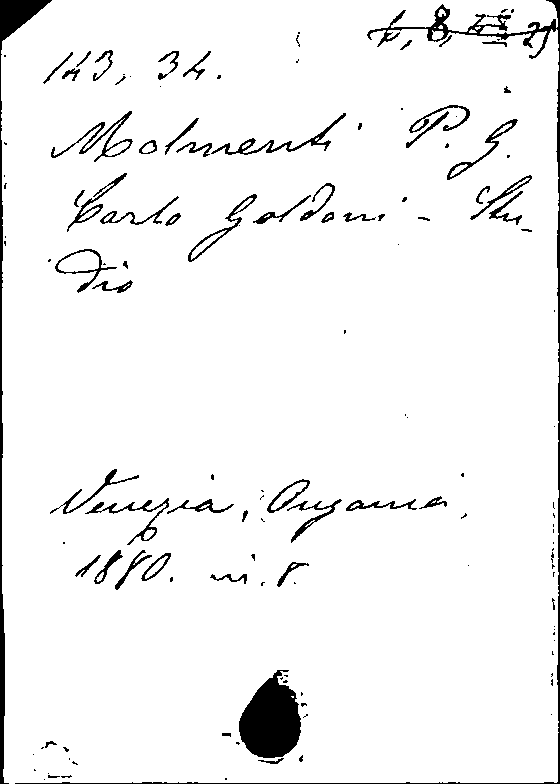 143, 34.
Molmenti P. G.
Carlo Goldoni - Stu-
dio
Venezia, Ongania,
1880. in. 8.